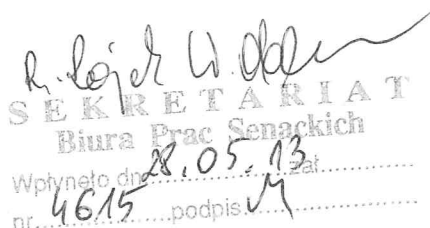 SEKRETARIAT
Biura Prac Senackich
Wpłynęło dn. 28.05.13 zał.
nr 4615 podpis